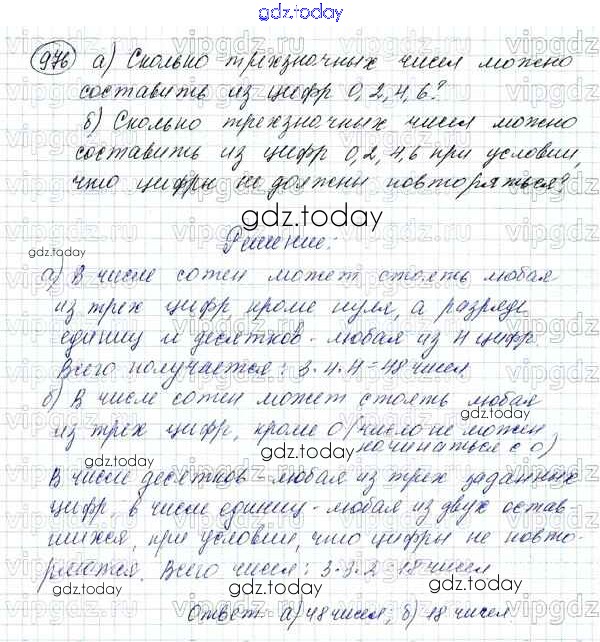 gdz.today
976 а) Сколько трехзначных чисел можно
составить из цифр 0, 2, 4, 6?
б) Сколько трехзначных чисел можно
составить из цифр 0, 2, 4, 6 при условии,
что цифры не должны повторяться?
gdz.today
Решение:
gdz.today
gdz.today
а) В числе сотен может стоять любая
из трех цифр, кроме нуля, а разряде
единиц и десятков - любая из 4 цифр.
Всего получается: 3·4·4=48 чисел.
б) В числе сотен может стоять любая
gdz.today
из трех цифр, кроме 0 (число не может
начинаться с 0)
gdz.today
В числе десятков - любая из трех заданных
цифр, в числе единиц - любая из двух остав
шихся, при условии, что цифры не повто-
ряются. Всего чисел: 3·3·2=18 чисел
gdz.today
gdz.today
Ответ: а) 48 чисел; б) 18 чисел.
gdz.today